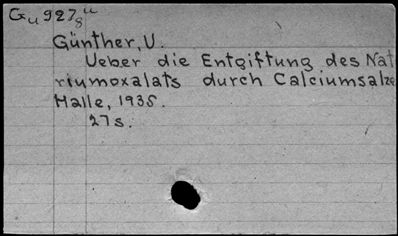 Gu 927 8 u
Günther, U.
Ueber die Entgiftung des Nat
riumoxalats durch Calciumsalze
Halle, 1935.
27s.